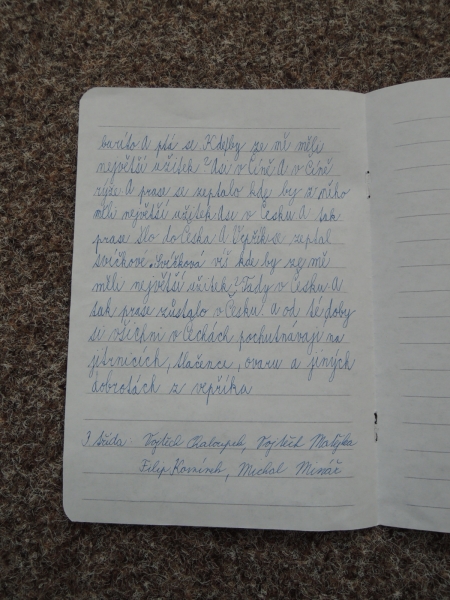 burito A ptá se Kdeby ze mě měli
největší užitek? Asi v Číně A v Číně
rýže A prase se zeptalo kde by z něho
měli největší užitek Ase v Česku A tak
prase šlo do Česka A Vepřík se zeptal
svíčkové. Svíčková víš kde by ze mě
měli největší užitek? Tády v Česku A
tak prase zůstalo v Česku. a od té doby
si všichni v Čechách pochutnávají na
jitrnicích, tlačence, ovaru a jiných
dobrotách z vepříka
3 třída: Vojtěch Chaloupek, Vojtěch Matějka
Filip Komínek, Michal